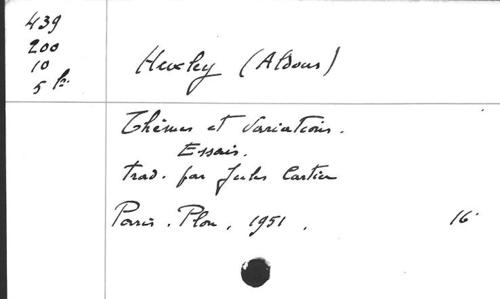 439
200
10
5
Huxley (Aldous)
Thèmes et Variations.
Essais.
trad. par Jules Castier
Paris. Plon, 1951.
16°